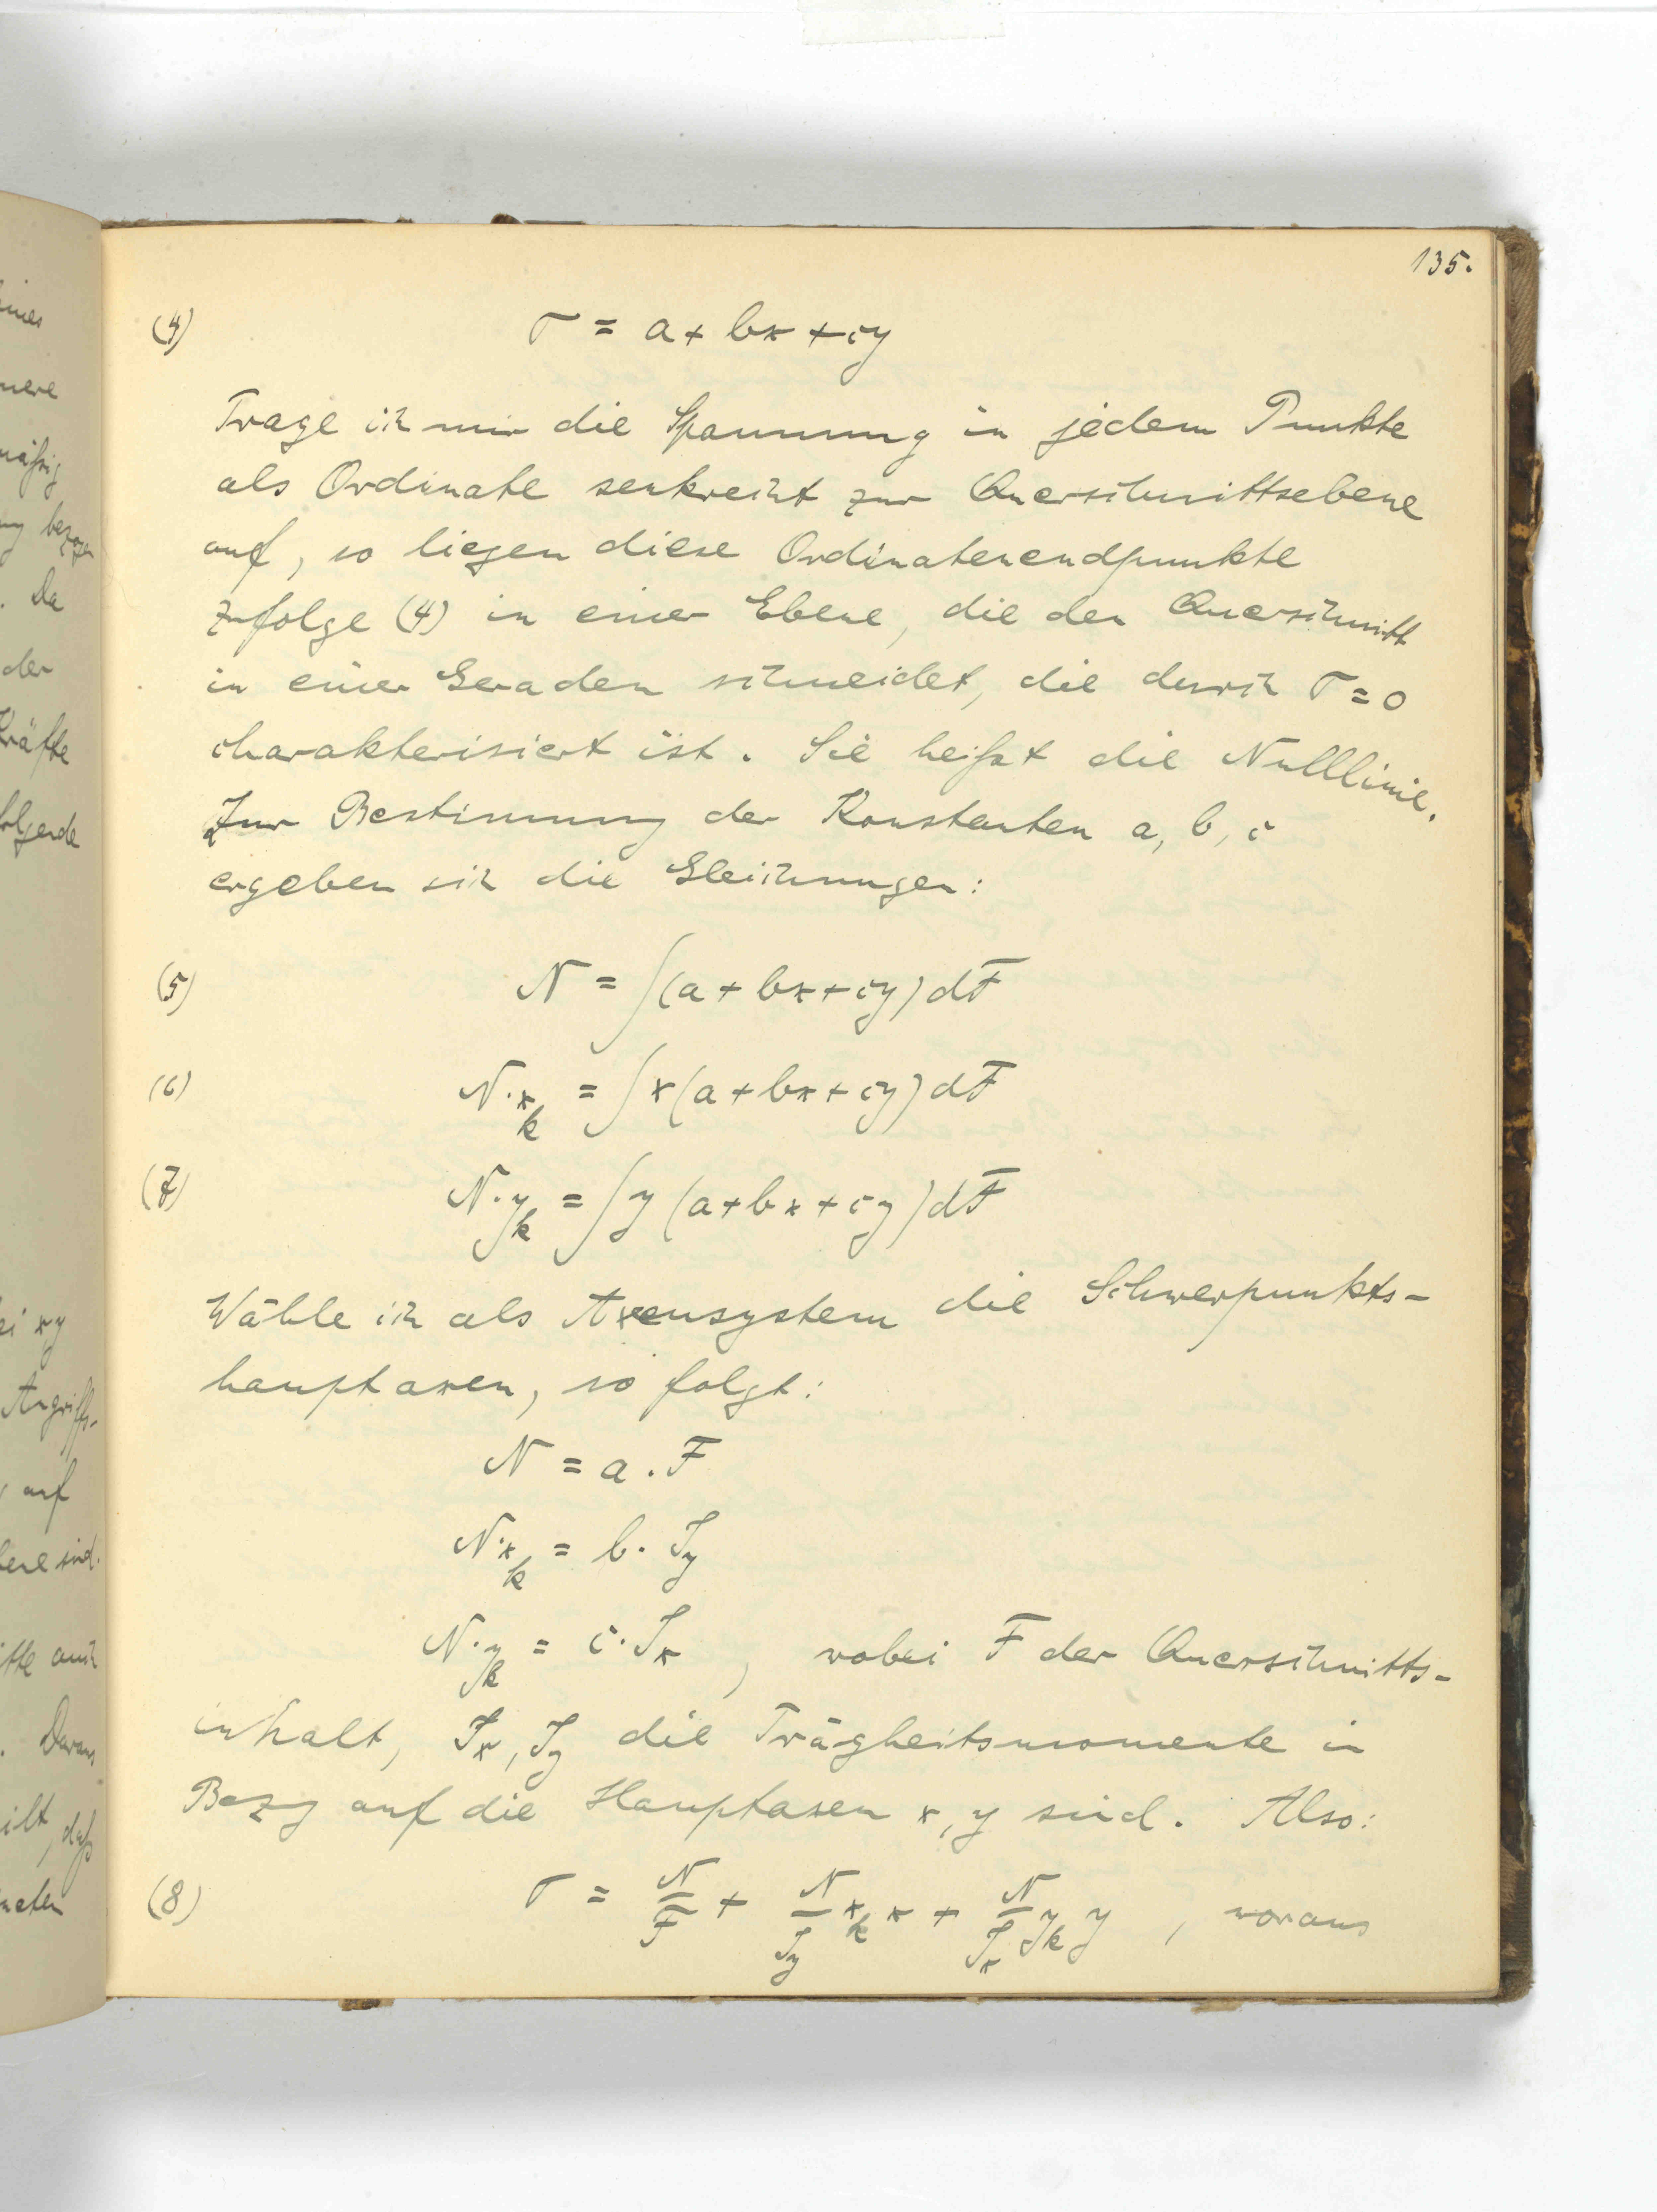 135.
(4) σ = a + bx + cy
Trage ich mir die Spannung in jedem Punkte
als Ordinate senkrecht zur Querschnittsebene
auf, so liegen diese Ordinatenendpunkte
zufolge (4) in einer Ebene, die den Querschnitt
in einer Geraden schneidet, die durch σ = 0
charakterisiert ist. Sie heißt die Nulllinie.
Zur Bestimmung der Konstanten a, b, c
ergeben sich die Gleichungen:
(5) N = ∫(a + bx + cy) dF
(6) N·x_k = ∫x(a + bx + cy) dF
(7) N·y_k = ∫y(a + bx + cy) dF
Wähle ich als Axensystem die Schwerpunkts-
hauptaxen, so folgt:
N = a . F
N·x_k = b · J_y
N·y_k = c · J_x , wobei F der Querschnitts-
inhalt, J_x, J_y die Trägheitsmomente in
Bezug auf die Hauptaxen x, y sind. Also:
(8) σ = N/F + N/J_y x_k x + N/J_x y_k y , woraus
mere
mäßig
bezogen
. Da
der
Kräfte
folgende
xy
Angriffs-
auf
sind.
auch
. Daraus
ilt, daß